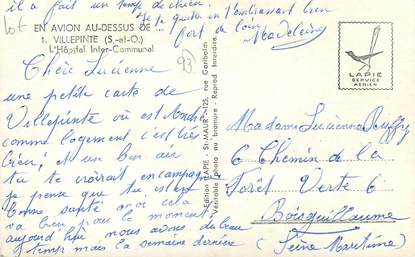 il a fait un temps de chien.
Je te quitte en t'embrassant bien
fort de loin.
Madeleine
Lot
EN AVION AU-DESSUS DE ...
1. VILLEPINTE (S.-et-O.)
L'Hôpital Inter-Communal
93
Chère Lucienne
une petite carte de
Villepinte où est André
comme logement c'est très
bien, et un bon air
tu te croirait en campagne
je pense que tu est
bonne santé moi cela
va bien pour le moment
aujourd'hui nous avons de beau
temps mais la semaine dernière
Edition LAPIE - St-MAUR - 125, rue Garibaldi
Véritable photo au bromure - Reprod Interdite
LAPIE
SERVICE
AERIEN
Madame Lucienne
6 Chemin de la
Forêt Verte 6
Boisguillaume
(Seine Maritime)